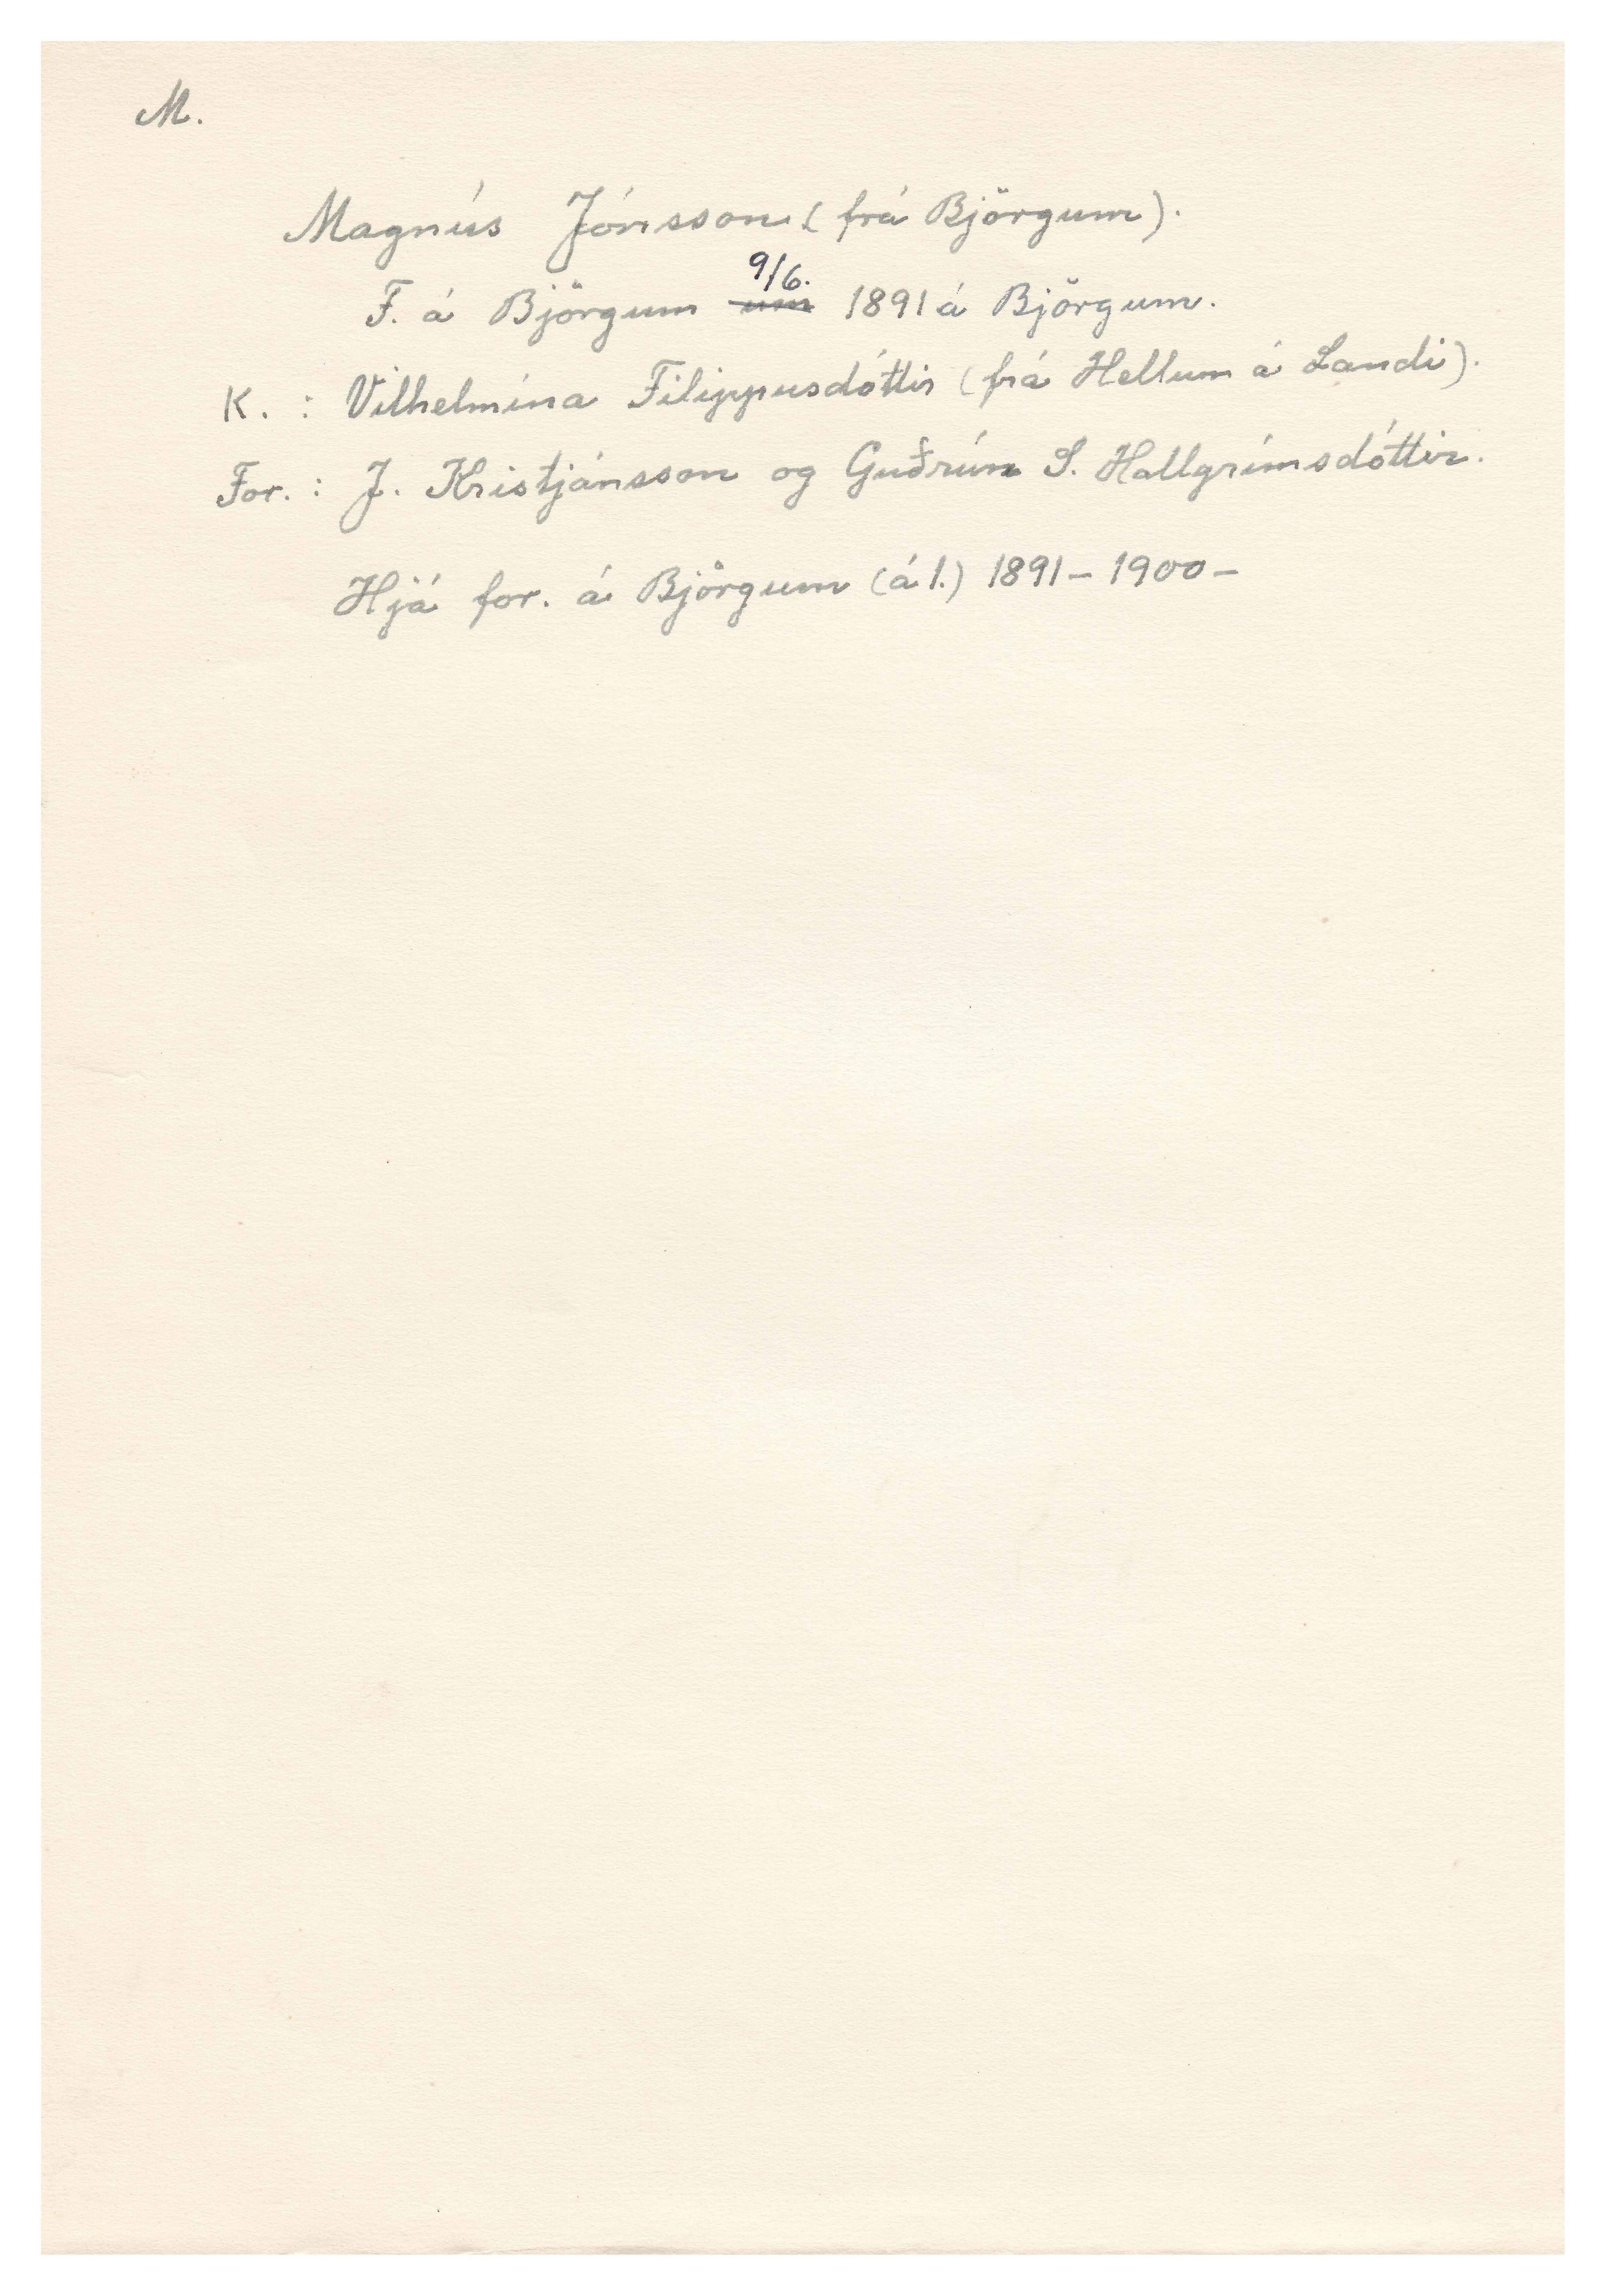 M.
Magnús Jónsson (frá Björgum).
F. á Björgum um 9/6. 1891 á Björgum.
K. : Vilhelmína Filippusdóttir (frá Hellum á Landi).
For. : J. Kristjánsson og Guðrún S. Hallgrímsdóttir.
Hjá for. á Björgum (á 1.) 1891 - 1900 -